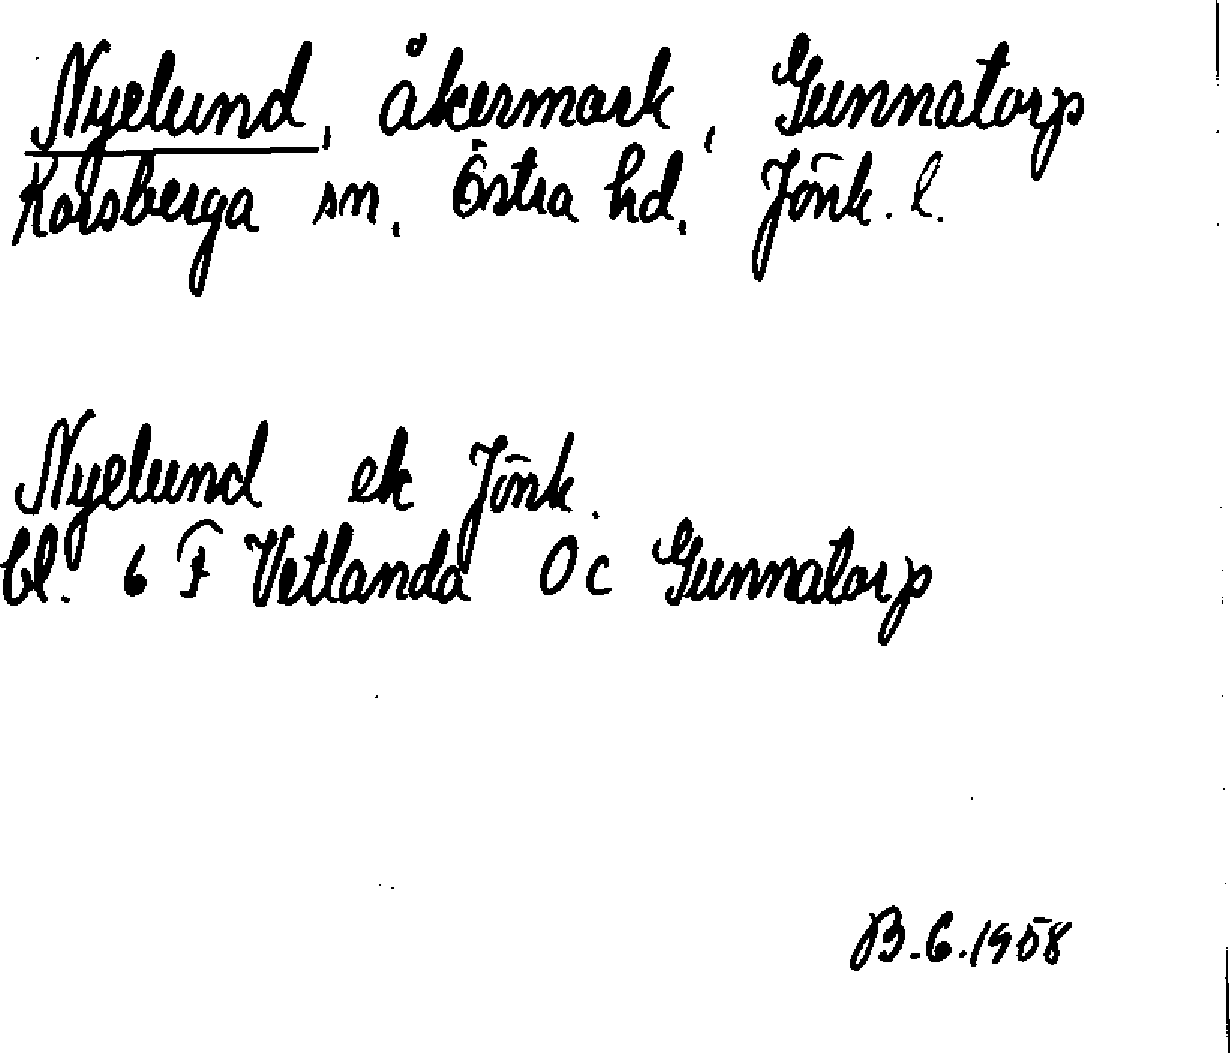 Nyelund, åkermark, Gunnatorp
Korsberga sn, Östra hd, Jönk. l.
Nyelund ek Jönk.
bl. 6 F Vetlanda 0 c Gunnatorp
B.G.1958